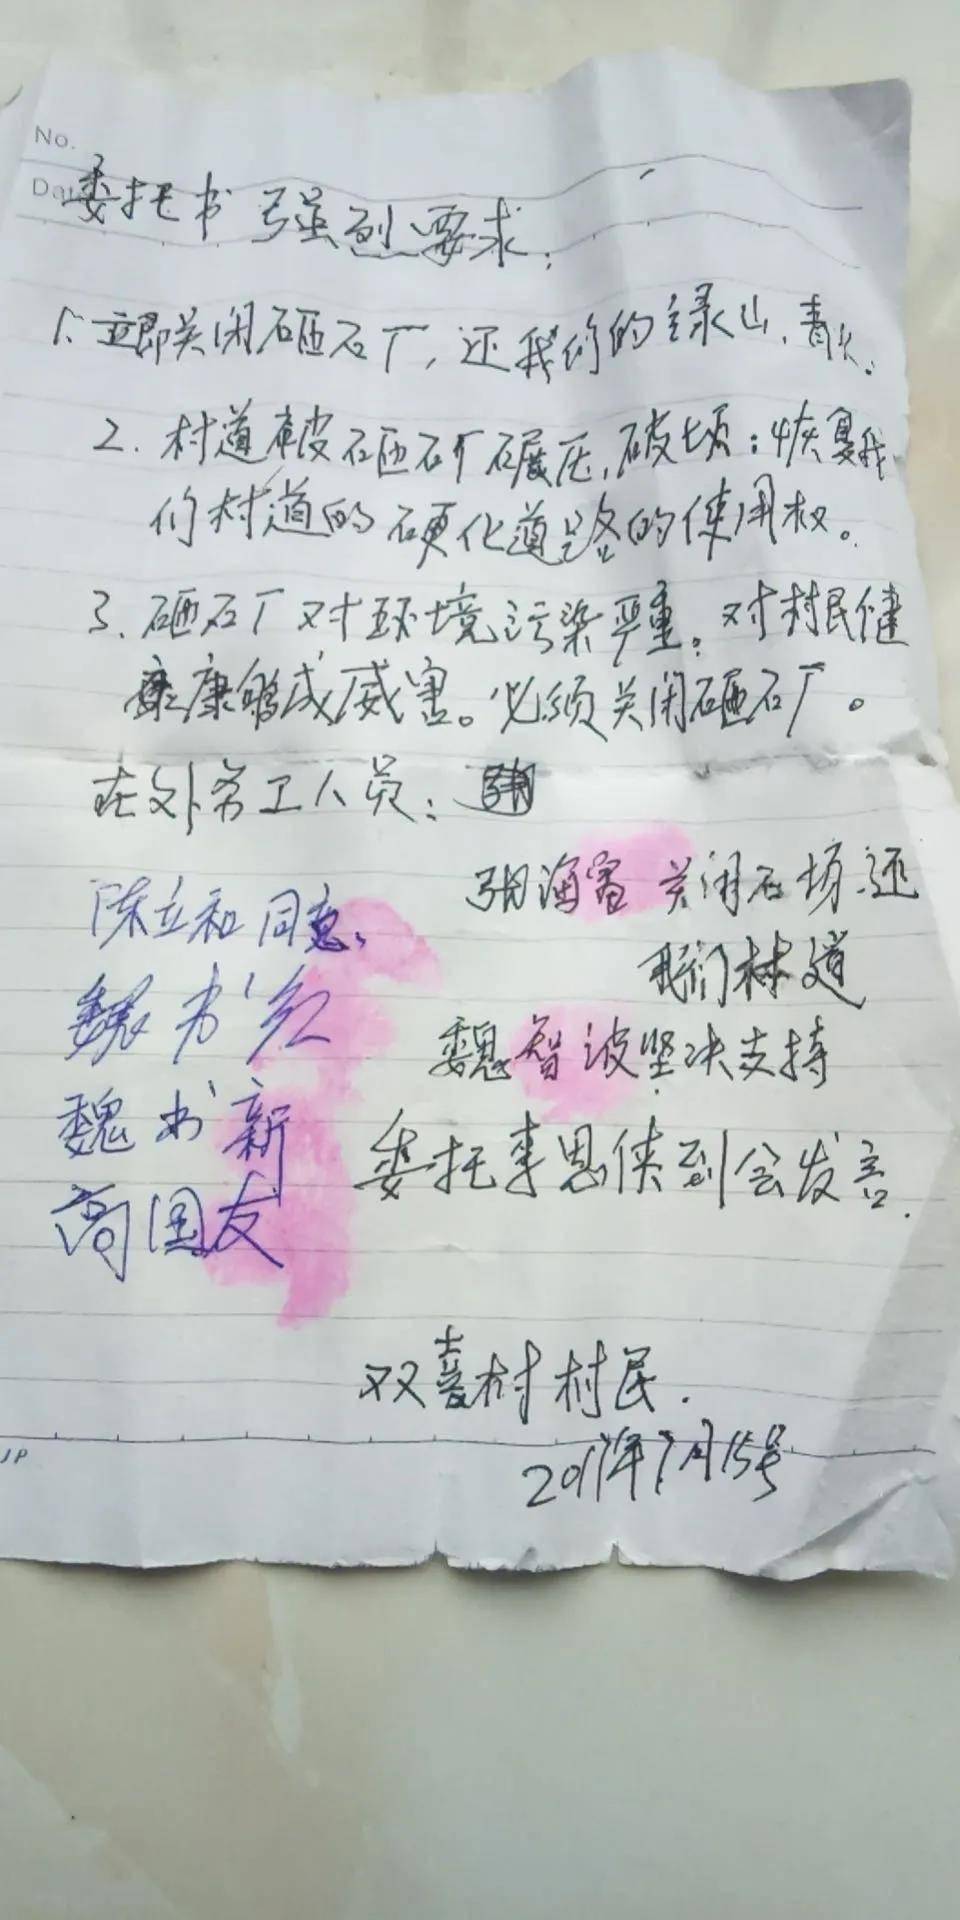 No.
Date
委托书 强烈要求:
1、立即关闭砸石厂,还我们的绿山,青水.
2. 村道被砸石厂碾压,破坏;恢复我
们村道的硬化道路的使用权。
3.砸石厂对环境污染严重。对村民健
康 成威害。必须关闭砸石厂。
在外劳工人员:
陈立和同意、
张海 关闭石场.还
我们村道
魏书红
魏智波坚决支持
魏书新
委托李恩侠到会发言.
高国友
双喜村村民.
2017年7月15号